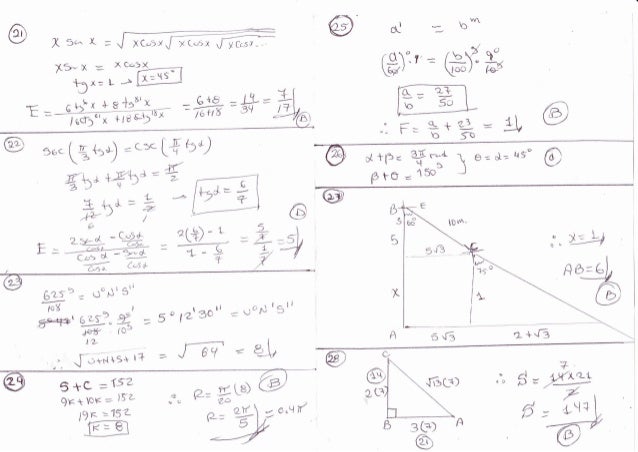 21
x Sen x = √x Cosx √x Cosx √x Cosx...
x Sen x = x Cosx
tg x = 1 → x = 45°
E = 6 tg⁶x + 8 tg⁸¹x / 16 tg⁶¹x + 18 tg¹⁸x = 6+8 / 16+18 = 14/34 = 7/17
B
22
Sec (π/3 tgα) = CSC (π/4 tgα)
π/3 tgα + π/4 tgα = π/2
7/12 tgα = 1/2 → tgα = 6/7
6
D
E = 2 Senα/Cosα - Cosα/Cosα / Cosα/Cosα - Senα/Cosα = 2(6/7) - 1 / 1 - 6/7 = 5/7 / 1/7 = 5
23
625ˢ/108 = U°N'S''
625ᵍ/108 · 9°/10ᵍ = 5°12'30'' = U°N'S''
12
∴ √U+N+S+17 = √64 = 8
24
S+C = 152
9K+10K = 152
19K = 152
K = 8
∴ R = π/20 (8)
B
R = 2π/5 = 0.4π
25
a' = bᵐ
(a/60)° · 1 = (b/100)ᵍ · 9°/10ᵍ
a/b = 27/50
∴ F = a/b + 23/50 = 1
B
26
α+β = 3π/4 rad
β+θ = 150ᵍ
} θ = α = 45°
d
27
B
E
5
60°
10m.
5
5√3
75°
x
1
A
5√3
2+√3
∴ x = 1
AB = 6
B
28
C
14
2(7)
√13(7)
B
3(7)
A
21
7
∴ S = 14×21/2
S = 147
B